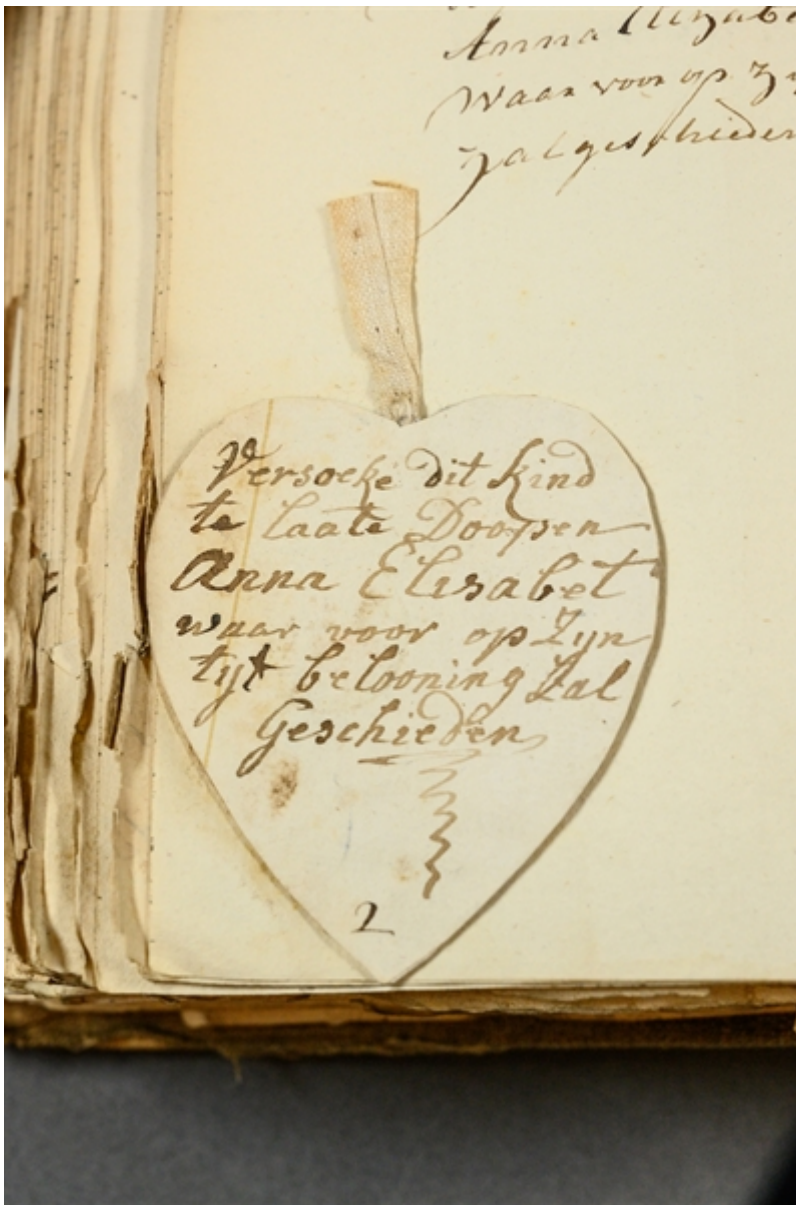 Anna Elizabe
Waar voor op Zy
Zal geschieden
Versoeke dit kind
te laate Doopen
Anna Elisabet
waar voor op Zyn
tyt belooning Zal
Geschieden
2